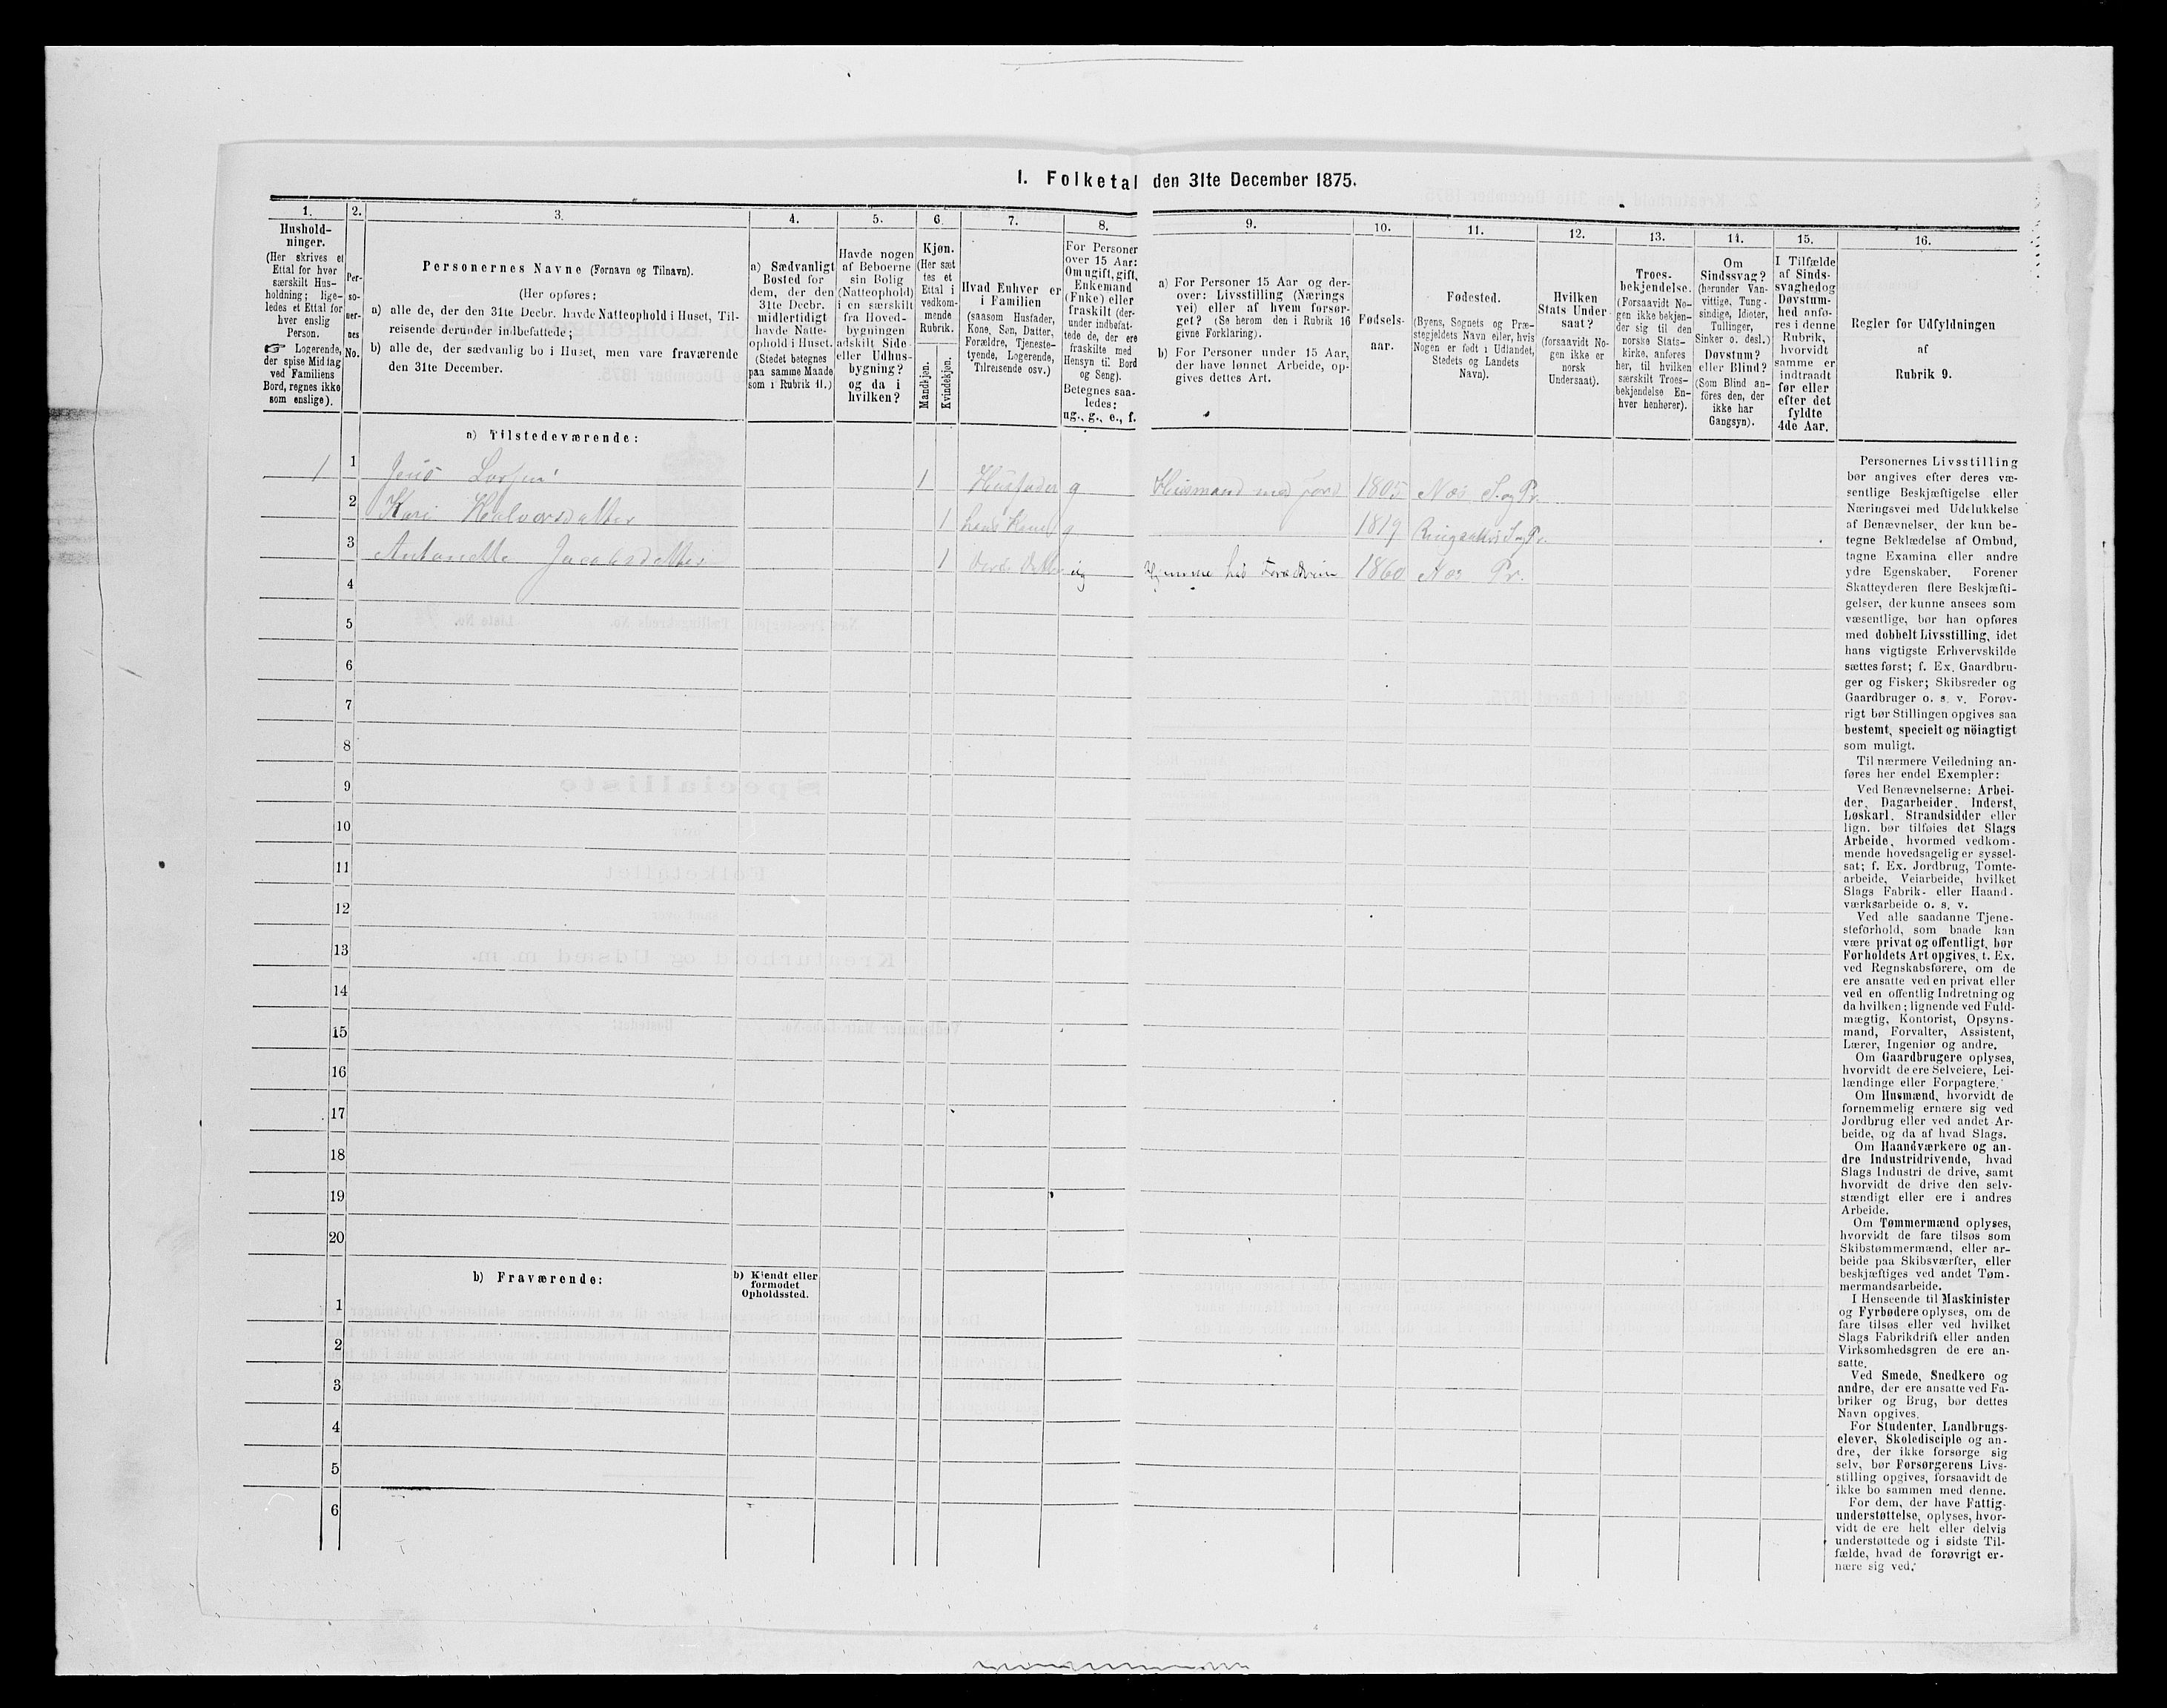 I. Folketal den 31te December 1875.
1.
2.
3.
4.
5.
6.
7.
8.
9.
10.
11.
12.
13.
14.
15.
16.
Hushold-
ninger.
(Her skrives et
Ettal for hver
særskilt Hus-
holdning; lige-
ledes et Ettal for
hver enslig
Person.
☞ Logerende,
der spise Middag
ved Familiens
Bord, regnes ikke
som enslige).
Per-
so-
ner-
nes
No.
Personernes Navne (Fornavn og Tilnavn).
(Her opføres:
a) alle de, der den 31te Decbr. havde Natteophold i Huset, Til-
reisende derunder indbefattede;
b) alle de, der sædvanlig bo i Huset, men vare fraværende
den 31te December.
a) Sædvanligt
Bosted for
dem, der den
31te Decbr.
midlertidigt
havde Natte-
ophold i Huset.
(Stedet betegnes
paa samme Maade
som i Rubrik 11.)
Havde nogen
af Beboerne
sin Bolig
(Natteophold)
i en særskilt
fra Hoved-
bygningen
adskilt Side-
eller Udhus-
bygning?
og da i
hvilken?
Kjøn.
(Her sæt
tes et
Ettal i
vedkom-
mende
Rubrik.
Mandkjøn.
Kvindekjøn.
Hvad Enhver er
i Familien
(saasom Husfader,
Kone, Søn, Datter,
Forældre, Tjeneste-
tyende, Logerende,
Tilreisende osv.)
For Personer
over 15 Aar:
Om ugift, gift,
Enkemand
(Enke) eller
fraskilt (der-
under indbefat-
tede de, der ere
fraskilte med
Hensyn til Bord
og Seng).
Betegnes saa-
ledes:
ug., g., e., f.
a) For Personer 15 Aar og der-
over: Livsstilling (Nærings
vei) eller af hvem forsør-
get? (Se herom den i Rubrik 16
givne Forklaring).
b) For Personer under 15 Aar,
der have lønnet Arbeide, op-
gives dettes Art.
Fødsels-
aar.
Fødested.
(Byens, Sognets og Præ-
stegjeldets Navn eller, hvis
Nogen er født i Udlandet,
Stedets og Landets
Navn).
Hvilken
Stats Under-
saat?
(forsaavidt No-
gen ikke er
norsk
Undersaat).
Troes-
bekjendelse.
(Forsaavidt No-
gen ikke bekjen-
der sig til den
norske Stats-
kirke, anføres
her, til hvilken
særskilt Troes-
bekjendelse En-
hver henhører).
Om
Sindssvag?
(herunder Van-
vittige, Idioter,
Tullinger,
Sinker o. desl.)
Døvstum?
eller Blind?
(Som Blind an-
føres den, der
ikke har
Gangsyn).
I Tilfælde
af Sinds-
svaghed og
Døvstum-
hed anfø-
res i denne
Rubrik,
hvorvidt
samme er
indtraadt
før eller
efter det
fyldte
4de Aar.
Regler for Udfyldningen
af
Rubrik 9.
a) Tilstedeværende:
1 1 Jens 1 Husfader g Husmand med Jord 1805 Næs S. og Pr.
2 Kari Halvorsdatter 1 hans Kone g 1819 Ringsaker S og Pr.
3 Antonette Jacobsdatter 1 Deres Datter ug Hjemme hos Forældrene 1860 Næs Pr.
4
5
6
7
8
9
10
11
12
13
14
15
16
17
18
19
20
b) Fraværende:
b) Kjendt eller
formodet
Opholdssted.
1
2
3
4
5
6
Personernes Livsstilling
bør angives efter deres væ-
sentlige Beskjæftigelse eller
Næringsvei med Udelukkelse
af Benævnelser, der kun be-
tegne Beklædelse af Ombud,
tagne Examina eller andre
ydre Egenskaber. Forener
Skatteyderen flere Beskjæfti-
gelser, der kunne ansees som
væsentlige, bør han opføres
med dobbelt Livsstilling, idet
hans vigtigste Erhvervskilde
sættes først; f. Ex. Gaardbru-
ger og Fisker; Skibsreder og
Gaardbruger o. s. v. Forøv-
rigt bør Stillingen opgives saa
bestemt, specielt og nöiagtigt
som muligt.
Til nærmere Veiledning an-
føres her endel Exempler:
Ved Benævnelserne: Arbei-
der, Dagarbeider, Inderst,
Løskarl, Strandsidder eller
lign. bør tilføies det Slags
Arbeide, hvormed vedkom-
mende hovedsagelig er syssel-
sat; f. Ex. Jordbrug, Tomte-
arbeide, Veiarbeide, hvilket
Slags Fabrik- eller Haand-
værksarbeide o. s. v.
Ved alle saadanne Tjene-
steforhold, som baade kan
være privat og offentligt, bør
Forholdets Art opgives, t. Ex.
ved Regnskabsførere, om de
ere ansatte ved en privat eller
ved en offentlig Indretning og
da hvilken; lignende ved Fuld-
mægtig, Kontorist, Opsyns-
mand, Forvalter, Assistent,
Lærer, Ingeniør og andre.
Om Gaardbrugere oplyses,
hvorvidt de ere Selveiere, Lei-
lændinge eller Forpagtere.
Om Husmænd, hvorvidt de
fornemmelig ernære sig ved
Jordbrug eller ved andet Ar-
beide, og da af hvad Slags.
Om Haandværkere og an-
dre Industridrivende, hvad
Slags Industri de drive, samt
hvorvidt de drive den selv-
stændigt eller ere i andres
Arbeide.
Om Tømmermænd oplyses,
hvorvidt de fare tilsøs som
Skibstømmermænd, eller ar-
beide paa Skibsværfter, eller
beskjæftiges ved andet Tøm-
mermandsarbeide.
I Henseende til Maskinister
og Fyrbødere oplyses, om de
fare tilsøs eller ved hvilket
Slags Fabrikdrift eller anden
Virksomhedsgren de ere an-
satte.
Ved Smede, Snedkere og
andre, der ere ansatte ved Fa-
briker og Brug, bør dettes
Navn opgives.
For Studenter, Landbrugs-
elever, Skoledisciple og an-
dre, der ikke forsørge sig
selv, bør Forsørgerens Livs-
stilling opgives, forsaavidt de
ikke bo sammen med denne.
For dem, der have Fattig-
understøttelse, oplyses, hvor-
vidt de ere helt eller delvis
understøttede og i sidste Til-
fælde, hvad de forøvrigt er-
nære sig ved.